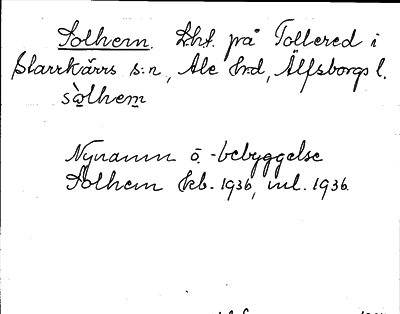 Solhem. Lht. på Tollered i
Starrkärrs s:n, Ale hrd, Älfsborgs l.
sòlhem
Nynamn o. -bebyggelse
Solhem kb. 1936, inl. 1936.